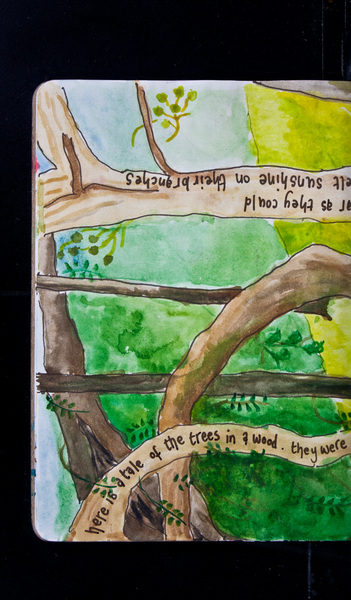 here is a tale of the trees in a wood. they were
ar as they could
elt sunshine on their branches